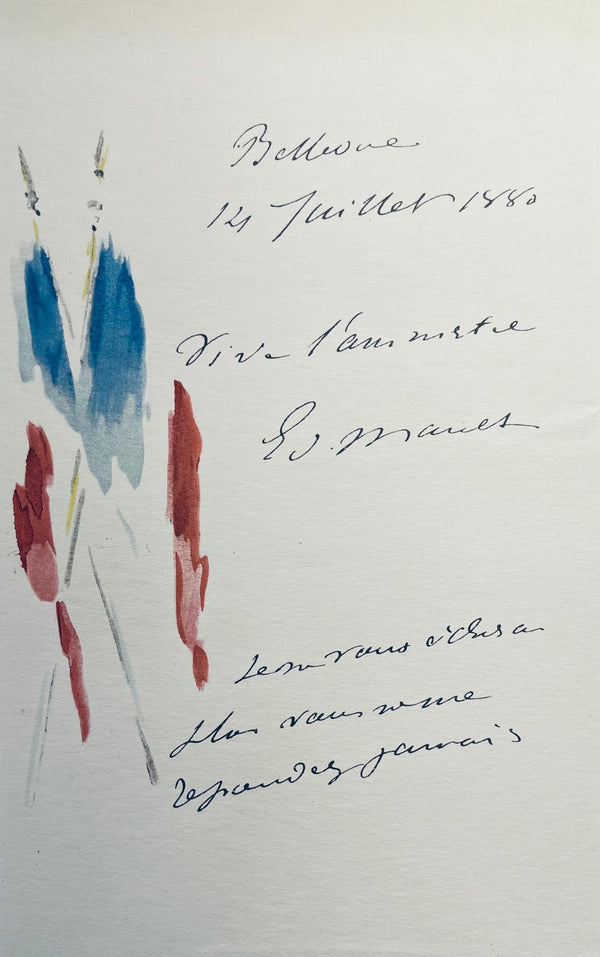 Bellevue
14 Juillet 1880
Vive l'amnistie
Ed. Manet
Je ne vous écrirai
plus vous ne me
répondez jamais